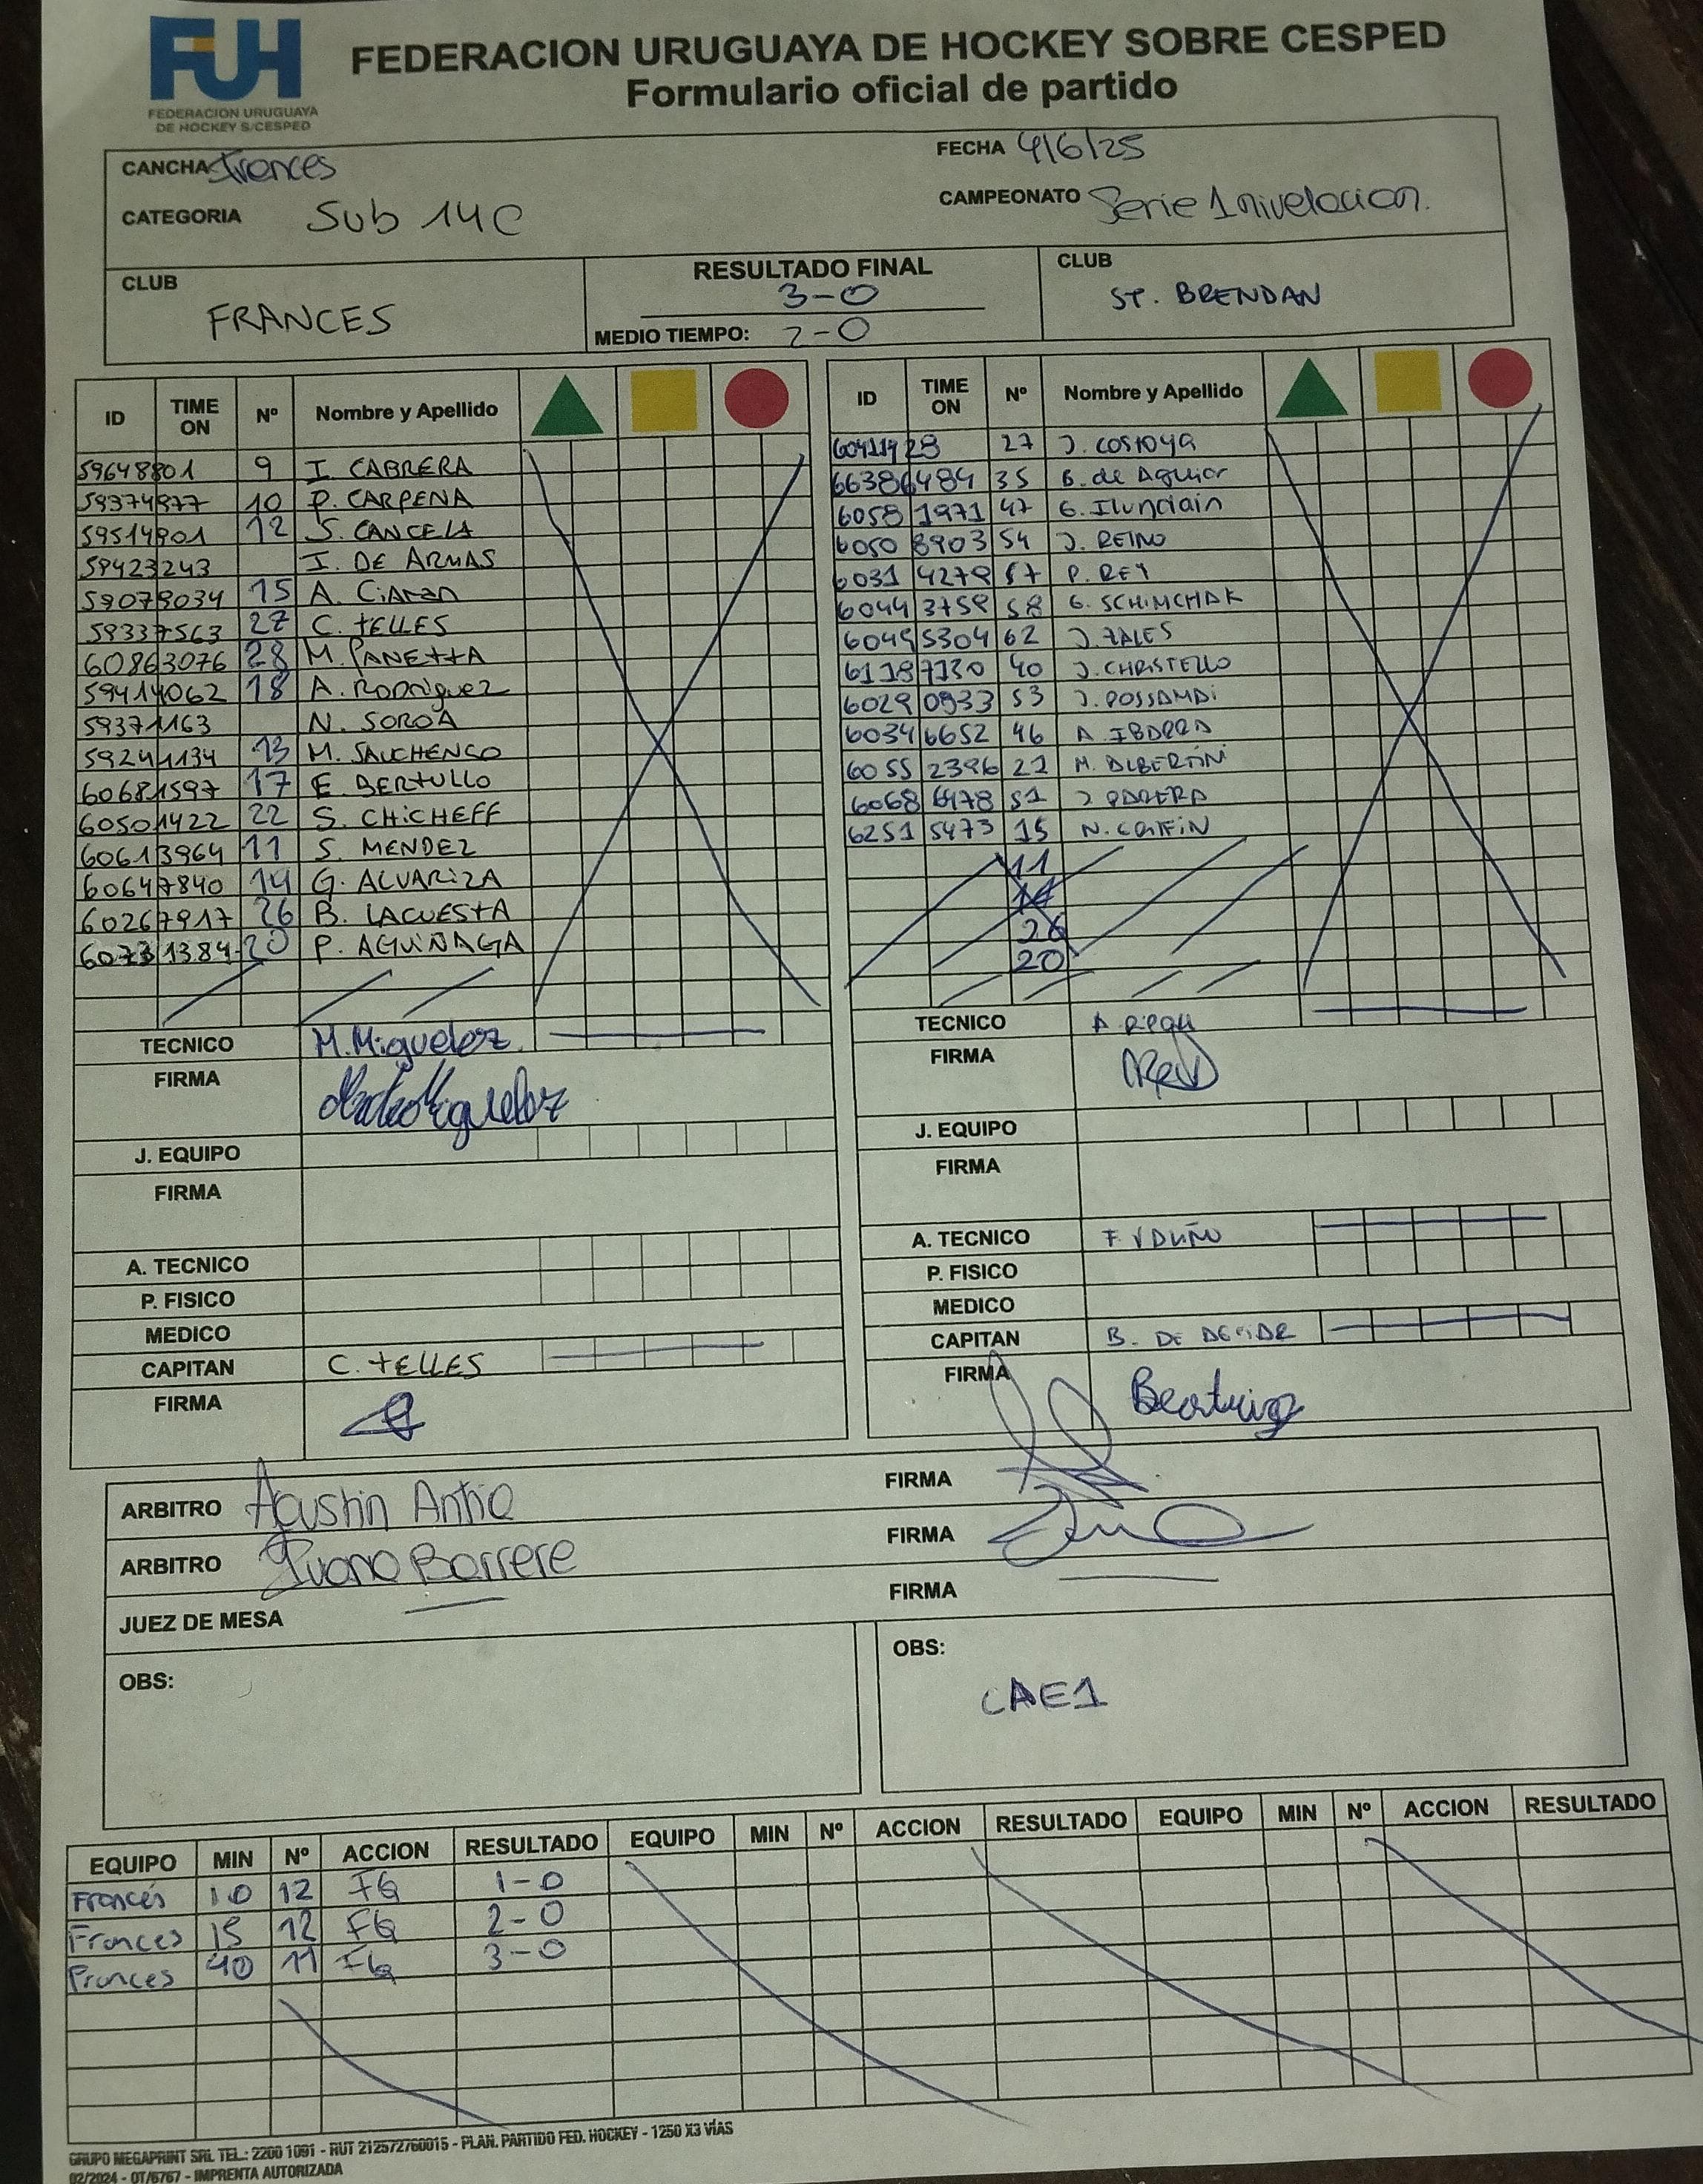 FUH
FEDERACION URUGUAYA
DE HOCKEY S/CESPED
FEDERACION URUGUAYA DE HOCKEY SOBRE CESPED
Formulario oficial de partido
CANCHA Frances
FECHA 4/6/25
CATEGORIA Sub 14C
CAMPEONATO Serie 1 nivelacion.
CLUB FRANCES
RESULTADO FINAL
3-0
MEDIO TIEMPO: 2-0
CLUB ST. BRENDAN
ID TIME ON Nº Nombre y Apellido
59648801 9 I. CABRERA
59374977 10 P. CARPENA
59514901 12 S. CANCELA
59423243 I. DE ARMAS
59079034 15 A. Ciaran
59337563 27 C. tELLES
60863076 28 M. PANETTA
59414062 18 A. Rodriguez
59371163 N. SOROA
59241134 13 M. SAUCHENCO
60681597 17 E. BERTULLO
60501422 22 S. CHiCHEFF
60613964 11 S. MENDEZ
60647840 14 G. ALVARIZA
60267917 26 B. LACUESTA
60731384 20 P. AGUIÑAGA
TECNICO M. Miguelez
FIRMA
J. EQUIPO
FIRMA
A. TECNICO
P. FISICO
MEDICO
CAPITAN C. tELLES
FIRMA
ID TIME ON Nº Nombre y Apellido
60411428 27 J. COSTOYA
66386484 35 B. de Aguiar
60581971 47 G. Ilundain
60508903 54 J. REINO
60314279 57 P. REY
60443758 58 G. SCHIMCHAK
60455304 62 J. ZALES
61197130 40 J. CHRISTELLO
60290933 53 J. POSSAMAI
60346652 46 A. IBARRA
60552396 21 M. ALBERTINI
60686478 51 J PARERA
62515473 15 N.
11
14
26
20
TECNICO
FIRMA
J. EQUIPO
FIRMA
A. TECNICO
P. FISICO
MEDICO
CAPITAN B. DE
FIRMA Beatriz
ARBITRO Agustin
FIRMA
ARBITRO Ivana Barrere
FIRMA
JUEZ DE MESA
FIRMA
OBS:
OBS:
CAE1
EQUIPO MIN Nº ACCION RESULTADO EQUIPO MIN Nº ACCION RESULTADO EQUIPO MIN Nº ACCION RESULTADO
Francés 10 12 FG 1-0
Frances 15 12 FG 2-0
Frances 40 11 FG 3-0
GRUPO MEGAPRINT SRL TEL.: 2200 1091 - RUT 212572760015 - PLAN. PARTIDO FED. HOCKEY - 1250 X3 VÍAS
02/2024 - OT/6767 - IMPRENTA AUTORIZADA